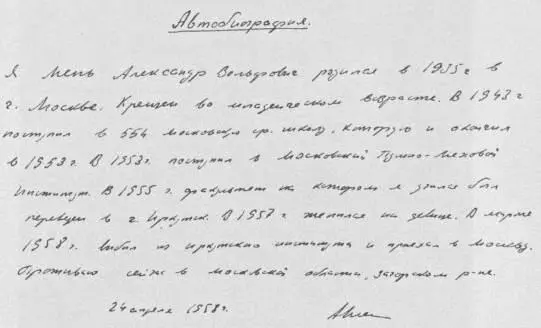 Автобиография.
Я Мень Александр Вольфович родился в 1935 г в
г. Москве. Крещен во младенческом возрасте. В 1943 г
поступил в 554 московскую ср. школу, которую и окончил
в 1953 г. В 1953 г. поступил в Московский Пушно-Меховой
Институт. В 1955 г. факультет на котором я учился был
переведен в г. Иркутск. В 1957 г женился на девице. В марте
1958 г. выбыл из иркутского института и приехал в Москву.
Проживаю сейчас в московской области, загорском р-не.
24 апреля 1958 г.